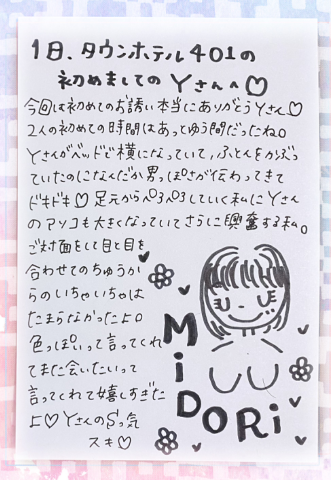 1日、タウンホテル401の
初めましてのYさんへ♡
今回は初めてのお誘い本当にありがとうYさん♡
2人の初めての時間はあっとゆう間だったね。
Yさんがベッドで横になっていて,ふとんをかぶっ
ていたのになんだか男っぽさが伝わってきて
ドキドキ♡足元からペロペロしていく私にYさん
のアソコも大きくなっていてさらに興奮する私。
ご対面をして目と目を
合わせてのちゅうか
らのいちゃいちゃは
たまらなかったよ。
色っぽいって言ってくれ
てまた会いたいって
言ってくれて嬉しすぎた
よ♡YさんのSっ気
スキ♡
MiDORi